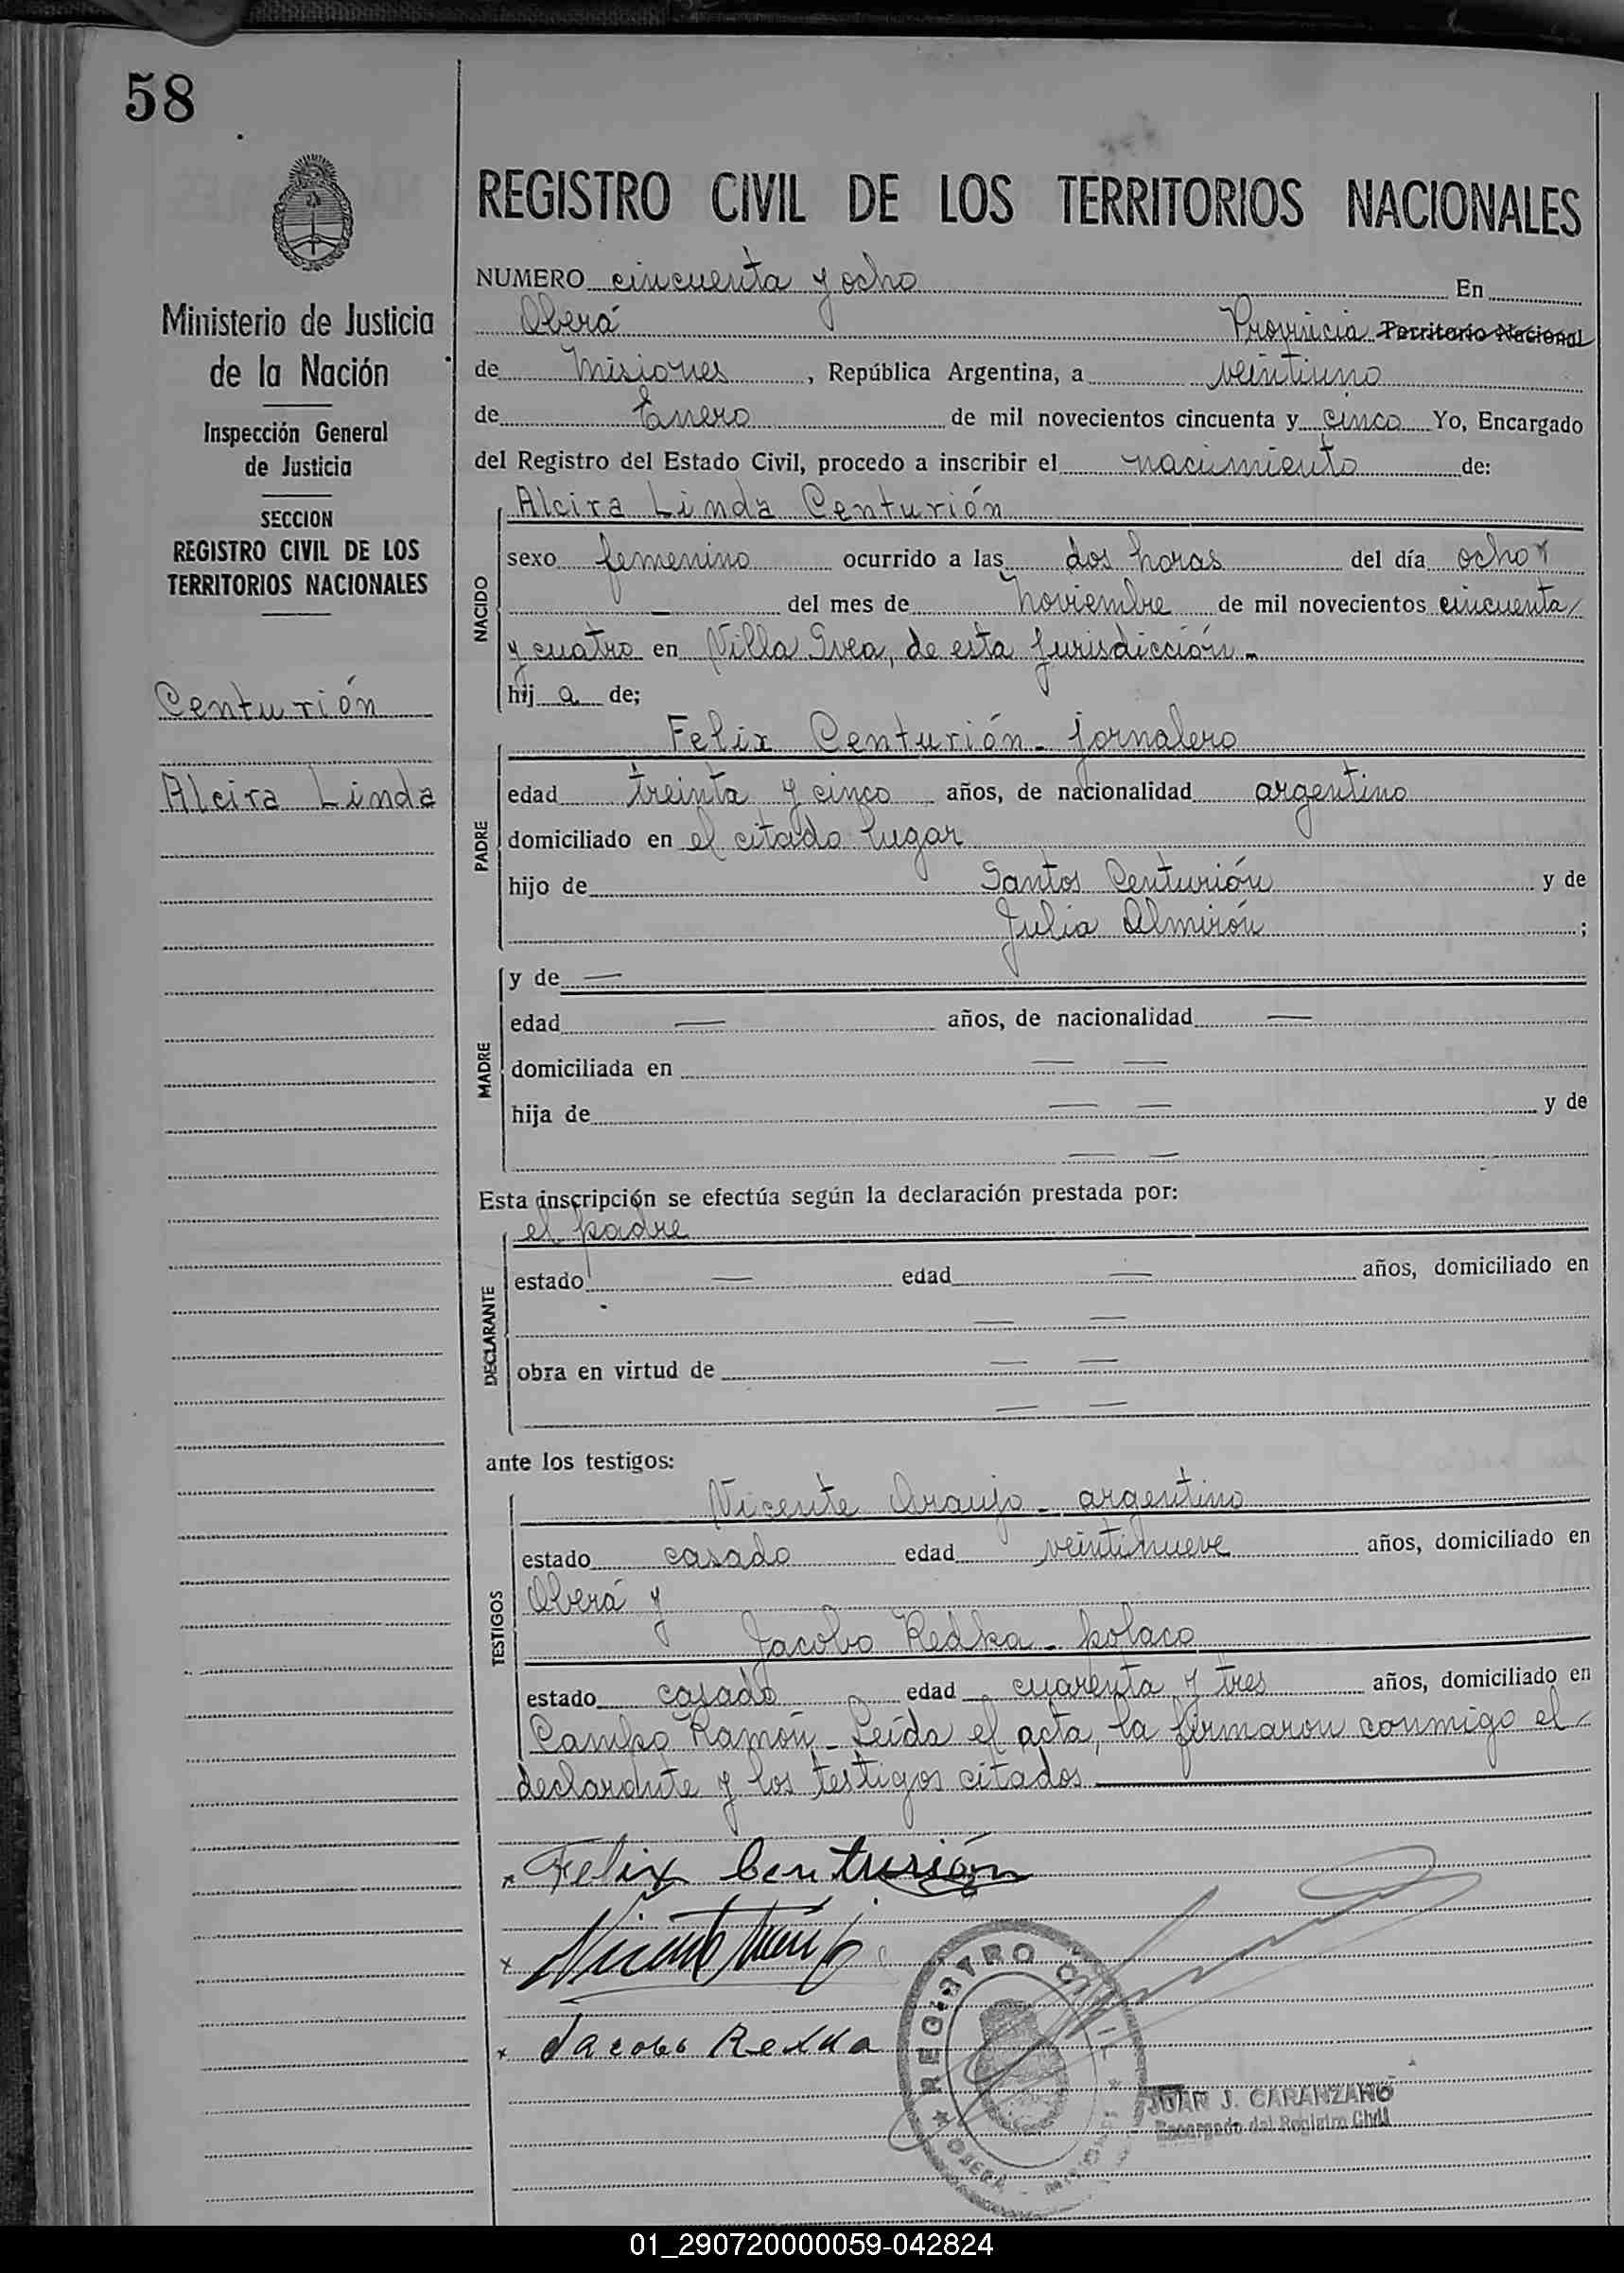 58
REGISTRO CIVIL DE LOS TERRITORIOS NACIONALES
Ministerio de Justicia
de la Nación
Inspección General
de Justicia
SECCION
REGISTRO CIVIL DE LOS
TERRITORIOS NACIONALES
Centurión
Alcira Linda
NUMERO cincuenta y ocho En
Oberá Provincia Territorio Nacional
de Misiones, República Argentina, a veintiuno
de Enero de mil novecientos cincuenta y cinco Yo, Encargado
del Registro del Estado Civil, procedo a inscribir el nacimiento de:
NACIDO
Alcira Linda Centurión
sexo femenino ocurrido a las dos horas del día ocho
— del mes de Noviembre de mil novecientos cincuenta
y cuatro en Villa Svea, de esta jurisdicción -
hij a de;
PADRE
Felix Centurión - jornalero
edad treinta y cinco años, de nacionalidad argentino
domiciliado en el citado lugar
hijo de Santos Centurión y de
Julia Almirón ;
MADRE
y de —
edad — años, de nacionalidad —
domiciliada en — —
hija de — — y de
— —
Esta inscripción se efectúa según la declaración prestada por:
DECLARANTE
el padre
estado — edad — años, domiciliado en
— —
obra en virtud de — —
— —
ante los testigos:
TESTIGOS
Vicente Araujo - argentino
estado casado edad veintinueve años, domiciliado en
Oberá y
Jacobo Redka - polaco
estado casado edad cuarenta y tres años, domiciliado en
Campo Ramón - Leída el acta, la firmaron conmigo el
declarante y los testigos citados
Felix Centurión
Jacobo Redka
REGISTRO CIVIL
OBERÁ - MISIONES
JUAN J. CARANZANO
Encargado del Registro Civil
01_290720000059-042824